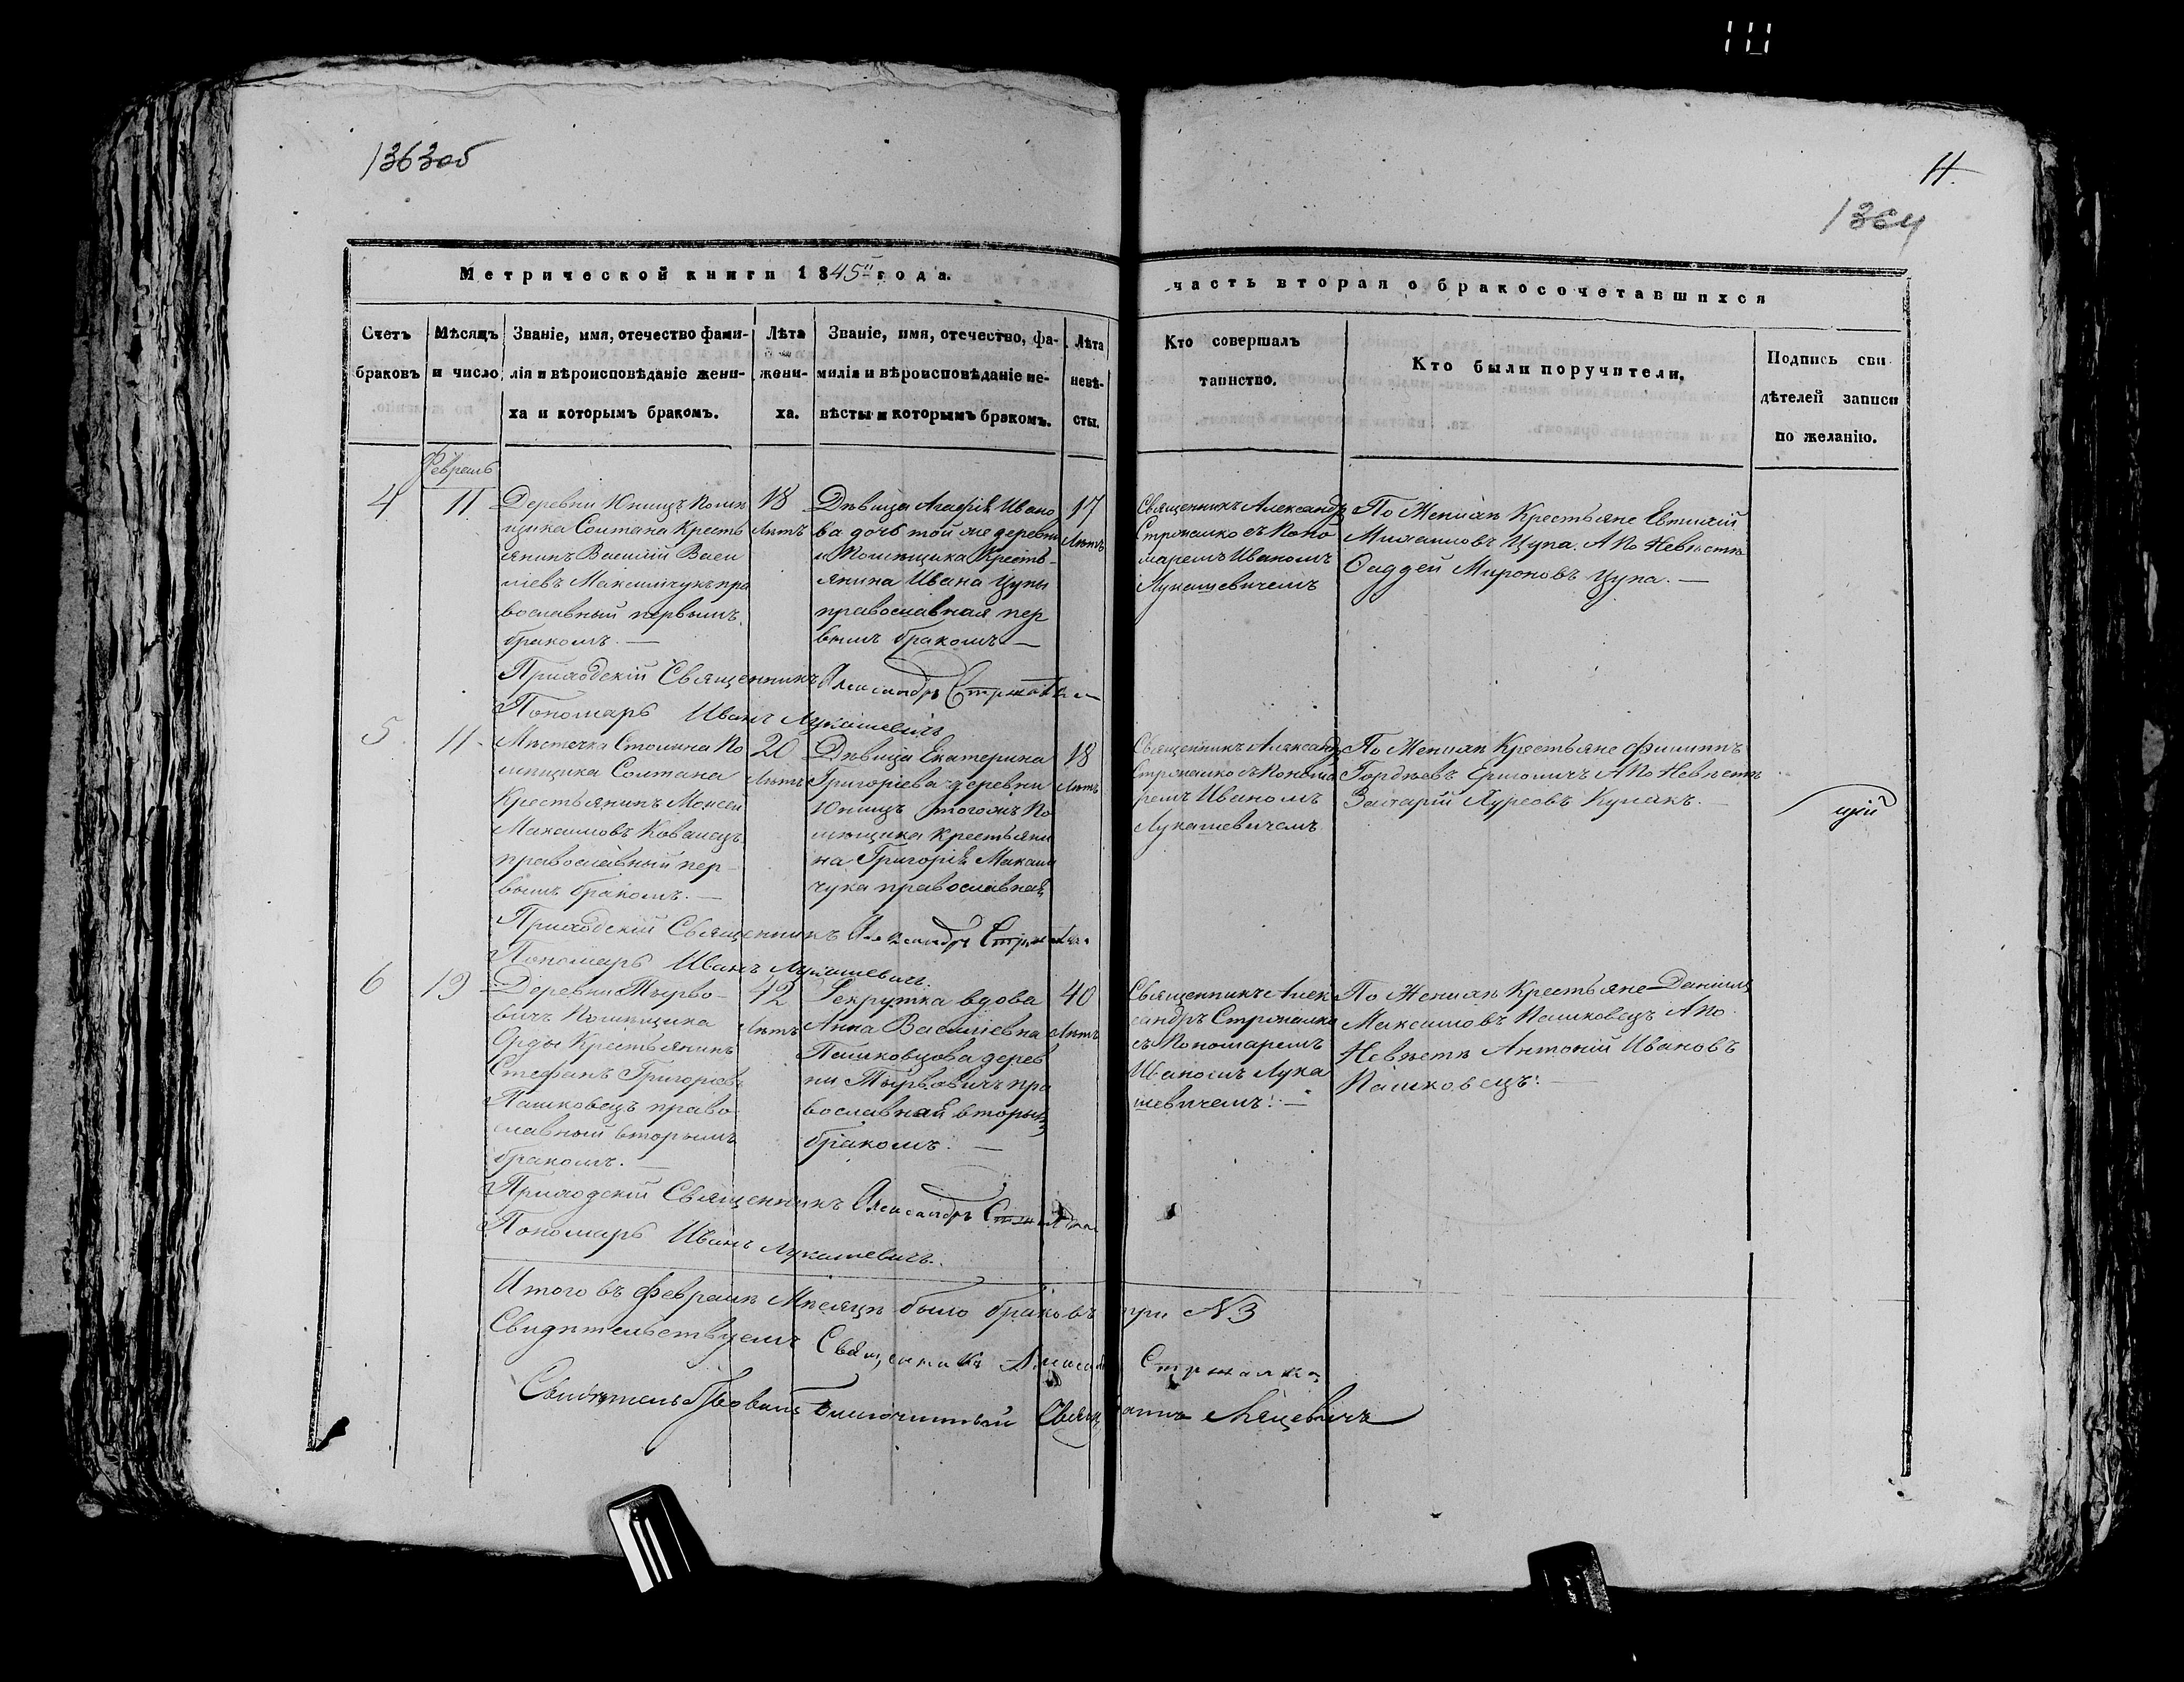 136об
11.
1364
Метрической книги 1845го года.
часть вторая о бракосочетавшихся
Счетъ браковъ
Мѣсяцъ и число
Званіе, имя, отечество фами-
лія и вѣроисповѣданіе жени-
ха и которымъ бракомъ.
Лѣта
жени-
ха.
Званіе, имя, отечество, фа-
милія и вѣроисповѣданіе не-
вѣсты и которымъ бракомъ.
Лѣта
невѣ-
сты.
Кто совершалъ
таинство.
Кто были поручители.
Подпись сви-
дѣтелей записи
по желанію.
Февраль
4
11
Деревни Юнищъ Помѣ
щика Солтана Кресть
янинъ Василій Васи
ліевъ Максимчукъ пра
вославный первымъ
бракомъ. —
18
Лѣтъ
Дѣвица Агафія Ивано
ва дочь той же деревни
и Помѣщика Кресть-
янина Ивана Цупы
православная пер
вымъ бракомъ —
17
Лѣтъ
Священникъ Александръ
Стржалко съ Поно
маремъ Иваномъ
Лукашевичемъ
По Женихѣ Крестьяне Евтихій
Михаиловъ Цупа. А по Невѣстѣ
Фаддей Мироновъ Цупа. —
Приходскій Священникъ Александръ Стржалко
Пономарь Иванъ Лукашевичъ
5.
11.
Мѣстечка Столина По
мѣщика Солтана
Крестьянинъ Моисей
Максимовъ Ковалецъ
православный пер
вымъ бракомъ. —
20
Лѣтъ
Дѣвица Екатерина
Григоріева деревни
Юнищъ тогожъ По
мѣщика Крестьяни
на Григорія Максим
чука православная
18
Лѣтъ
Священникъ Александръ
Стржалко съ Понома
ремъ Иваномъ
Лукашевичемъ
По Женихѣ Крестьяне Филиппъ
Гордѣевъ А по Невѣстѣ
Кулакъ. —
щій
Приходскій Священникъ Александръ Стржалко
Пономарь Иванъ Лукашевичъ.
6
19
Деревни Тырво-
вичъ Помѣщика
Орды Крестьянинъ
Стефанъ Григоріевъ
Пашковецъ право
славный вторымъ
бракомъ. —
42
Лѣтъ
Рекрутка вдова
Анна Василіевна
Пашковцова дерев
ни Тырвовичъ пра
вославная вторымъ
бракомъ. —
40
Лѣтъ
Священникъ Алек
сандръ Стржалко
съ Пономаремъ
Иваномъ Лука
шевичемъ. —
По Женихѣ Крестьяне Даніилъ
Максимовъ Пашковецъ А по
Невѣстѣ Антоній Ивановъ
Пашковецъ. —
Приходскій Священникъ Александръ Стржалко
Пономарь Иванъ Лукашевичъ.
Итого въ Февралѣ Мѣсяцѣ было браковъ три №3
Свидѣтельствуемъ Священникъ Александръ Стржалко
Свидѣтельствовалъ Благочинный Священникъ